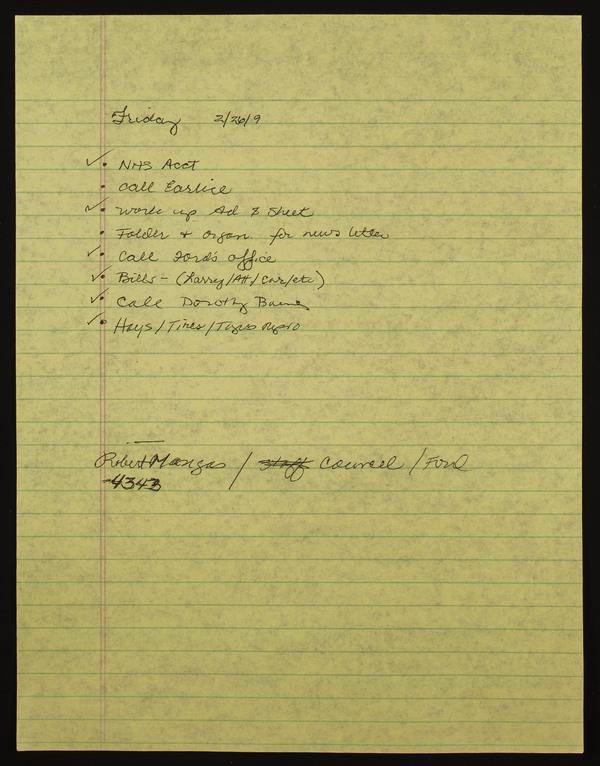 Friday 2/26/9
✓ • NHS Acct
• Call Earlice
✓ • work up Ad & sheet
• Folder + organ. for news letter
✓ • Call Ford's office
✓ • Bills - (Larry/AH/Car/etc)
✓ • Call Dorothy
✓ • Hays/Tires/
Robert Mangas / staff Counsel / Ford
4343